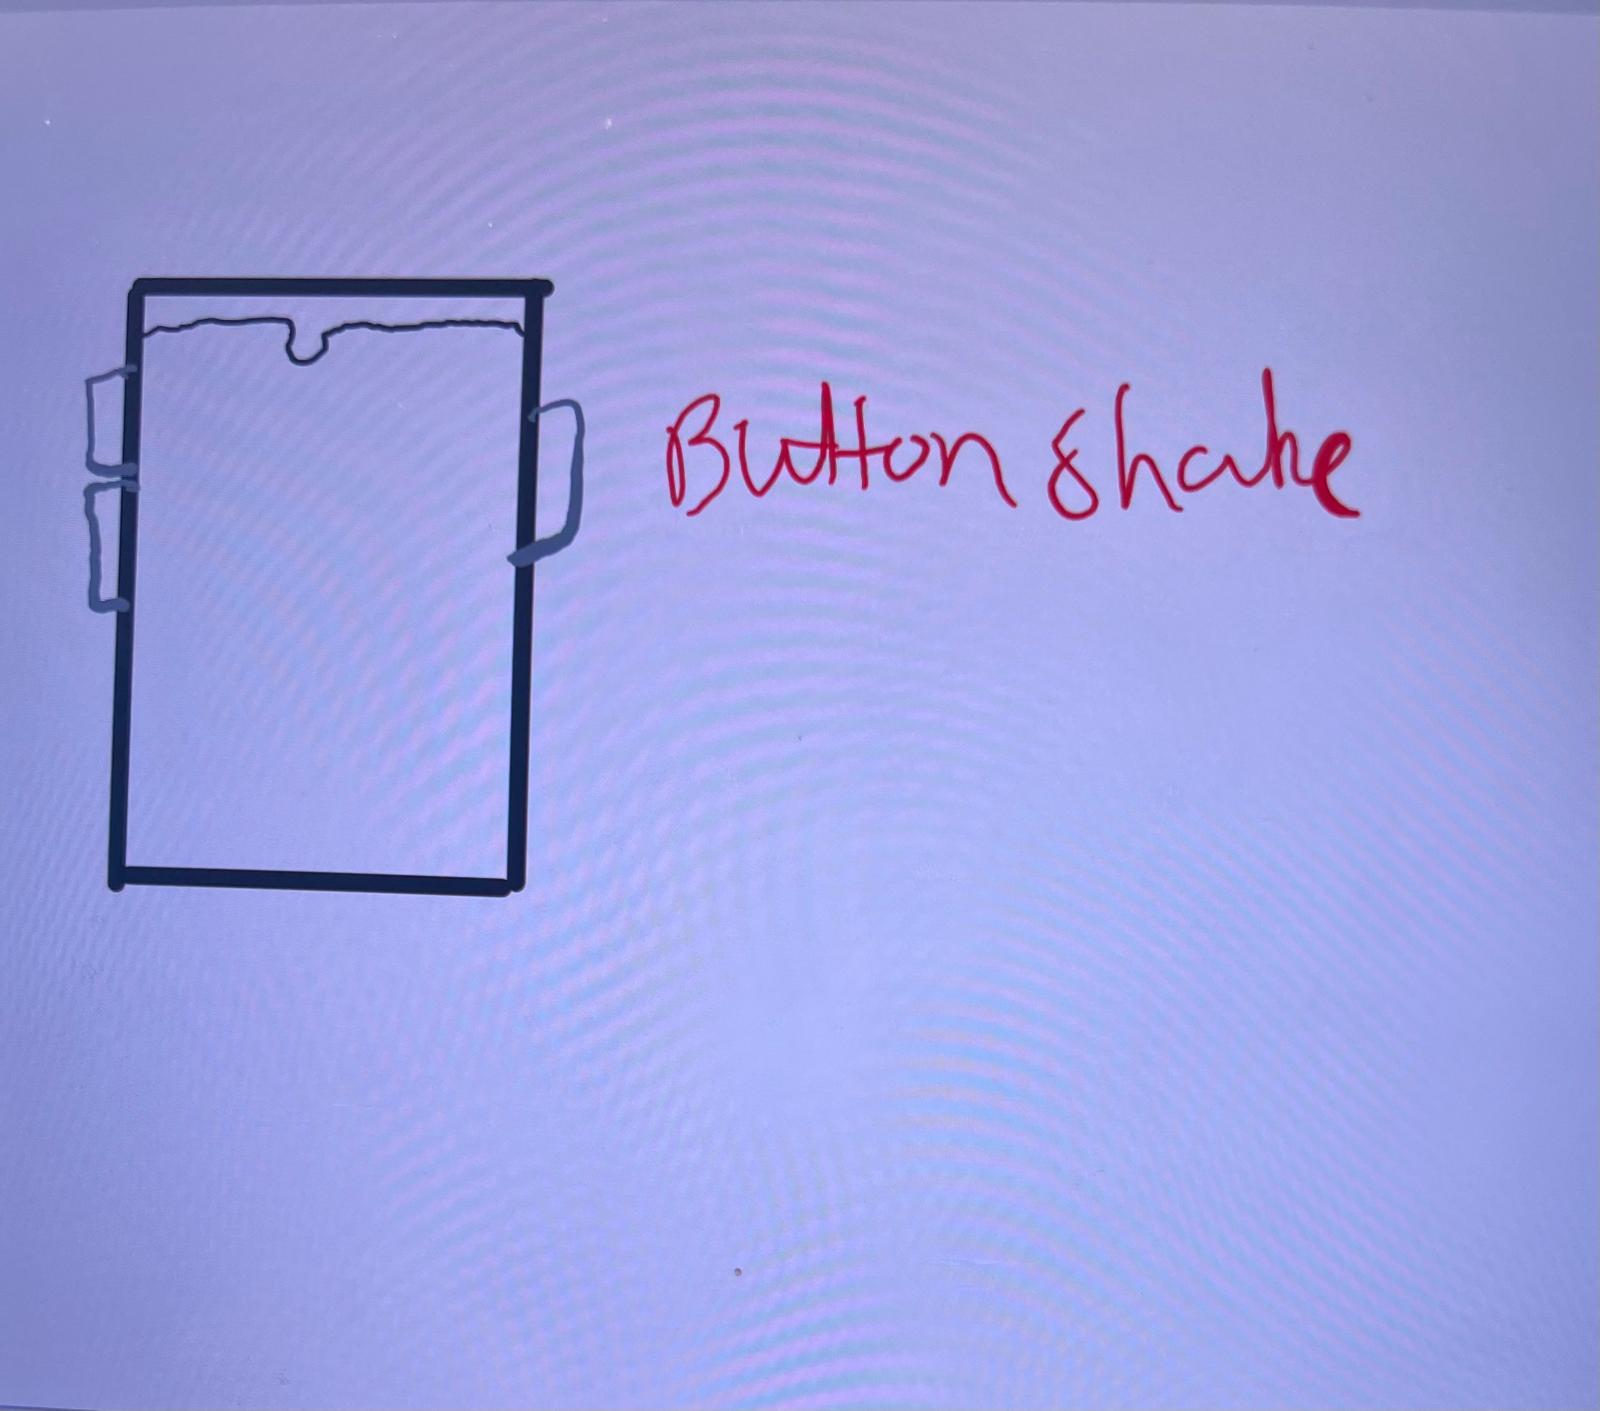 Button shake